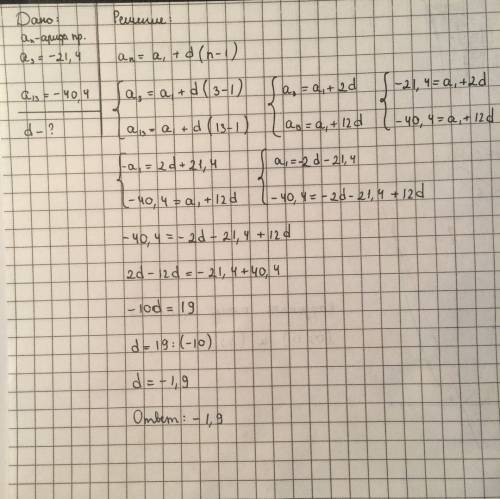 Дано:
aₙ-арифм пр.
a₃ = -21,4
a₁₃ = -40,4
d - ?
Решение:
aₙ = a₁ + d(n-1)
{ a₃ = a₁ + d(3-1) { a₃ = a₁ + 2d { -21,4 = a₁ + 2d
{ a₁₃ = a₁ + d(13-1) { a₁₃ = a₁ + 12d { -40,4 = a₁ + 12d
{ -a₁ = 2d + 21,4 { a₁ = -2d - 21,4
{ -40,4 = a₁ + 12d { -40,4 = -2d - 21,4 + 12d
-40,4 = -2d - 21,4 + 12d
2d - 12d = -21,4 + 40,4
-10d = 19
d = 19 : (-10)
d = -1,9
Ответ: -1,9